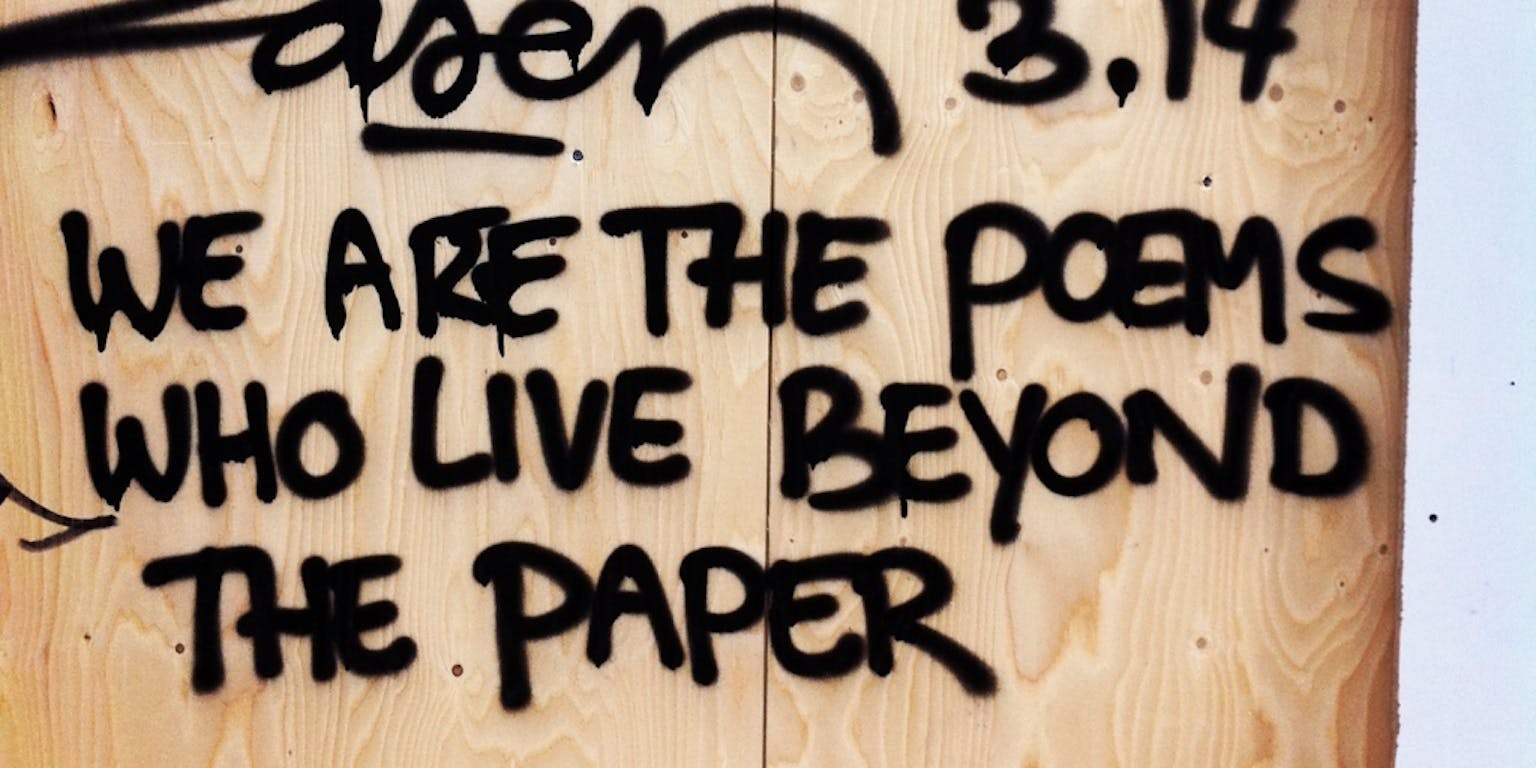 3.14
WE ARE THE POEMS
WHO LIVE BEYOND
THE PAPER